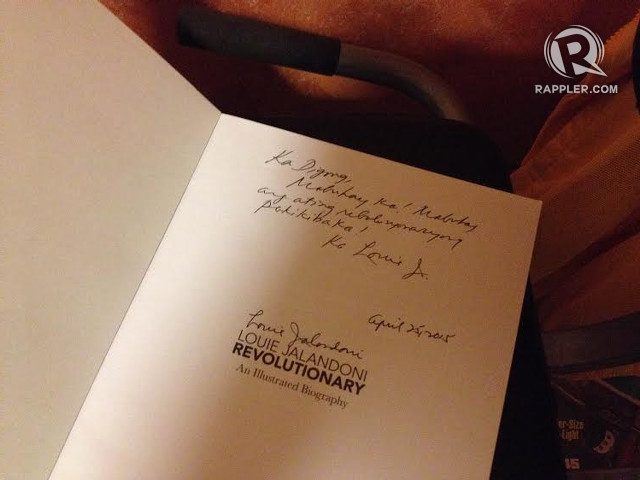 RAPPLER.COM
Ka Digong,
Mabuhay ka! Mabuhay
ang ating rebolusyonaryong
pakikibaka!
Ka Louie J.
April 25, 2015
Louie Jalandoni
LOUIE JALANDONI
REVOLUTIONARY
An Illustrated Biography
er-Size
Eight